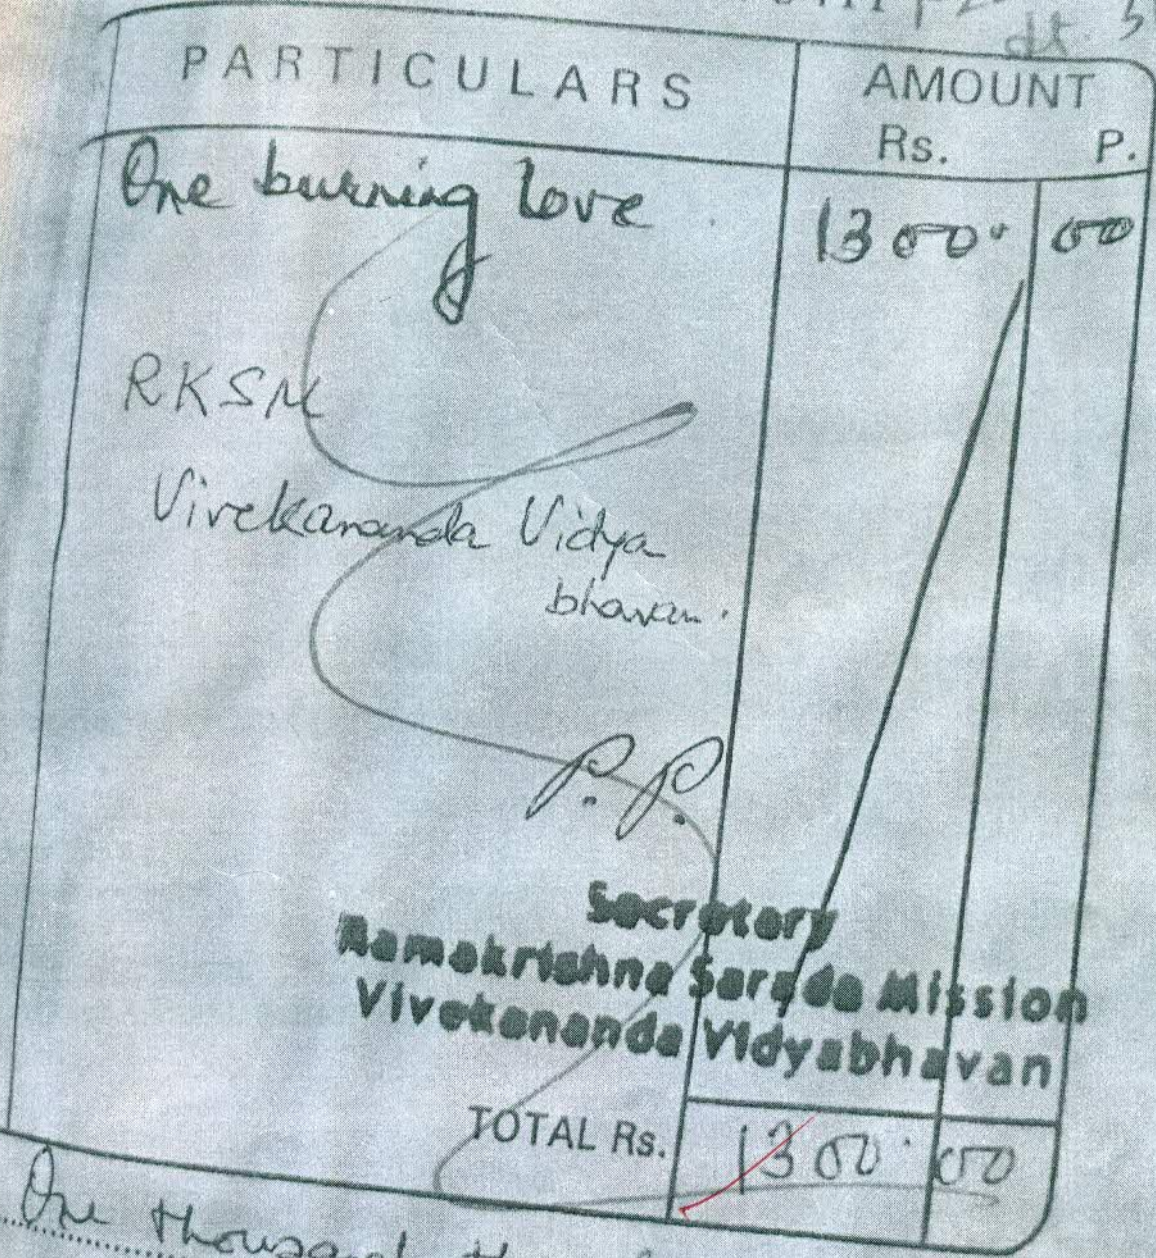 dt. 5
PARTICULARS
AMOUNT
Rs. P.
One burning love
1300. 00
RKSM
Vivekananda Vidya
bhavan.
P. P.
Secretary
Ramakrishna Sarada Mission
Vivekananda Vidyabhavan
TOTAL Rs. 1300. 00
One thousand